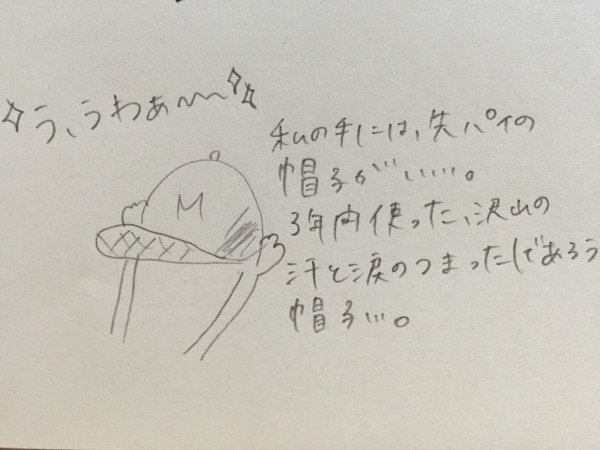 う、うわぁ〜〜
私の手には、先パイの
帽子が……。
3年内使った、沢山の
汗と涙のつまった(であろう
帽子…。
M